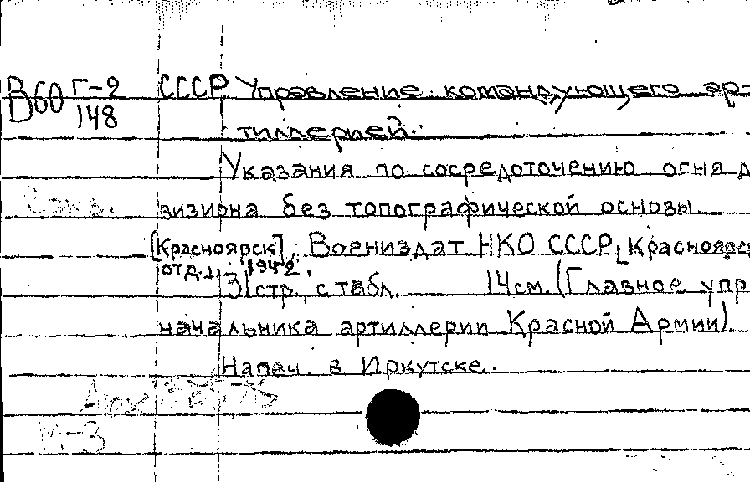 В60 Г-2 СССР Управление командующего ар-
148
тиллерией.
Указания по сосредоточению огня д
визиона без топографической основы.
[Красноярск], Воениздат НКО СССР, [Красноярск
отд.], 1942.
31 стр., с табл. 14 см. (Главное упр
начальника артиллерии Красной Армии).
Напеч. в Иркутске.
И-3